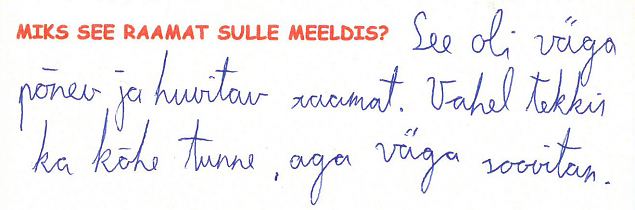 MIKS SEE RAAMAT SULLE MEELDIS? See oli väga
põnev ja huvitav raamat. Vahel tekkis
ka kõhe tunne, aga väga soovitan.